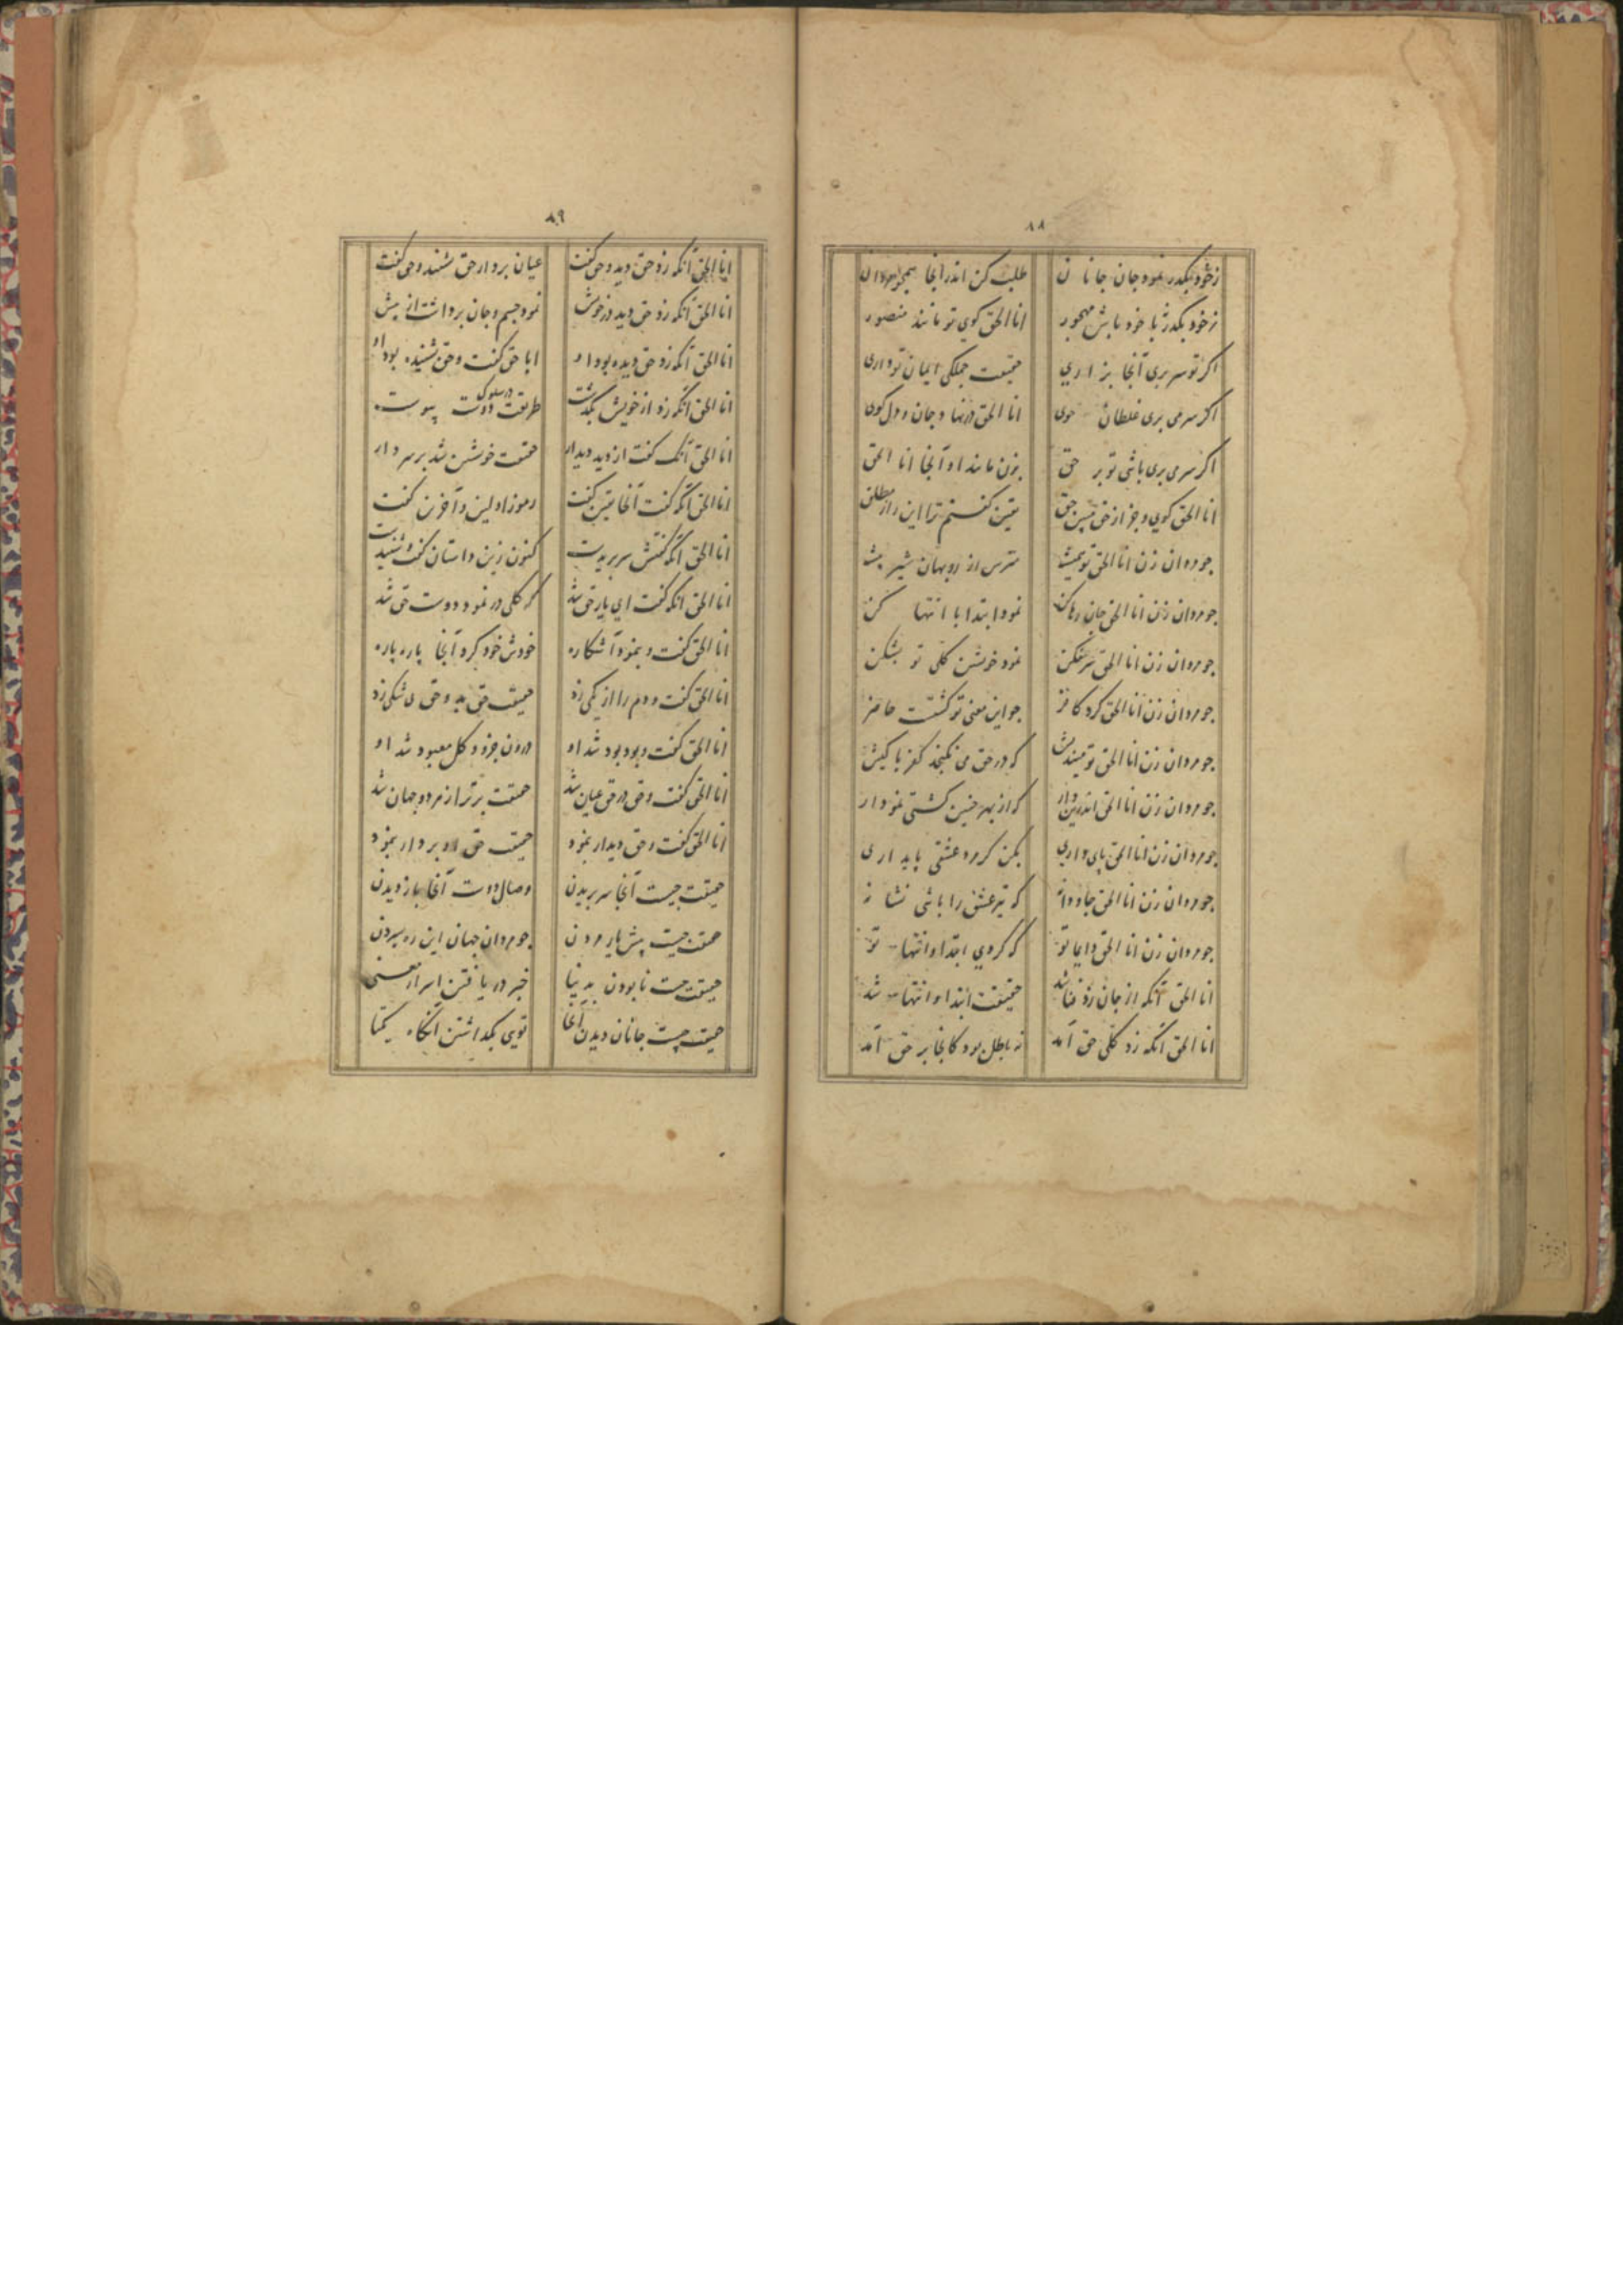 ۸۸
زخود بگذر نمود جان جانان طلب کن اندر آنجا همچو مردان
زخود بگذر تا خود باش مهجور انا الحق کوی تو مانند منصور
اکر تو سر بری آنجا بزاری حقیقت جملکی ایمان تو داری
اکر سر می بری غلطان کوی انا الحق در نها و جان و دل کوی
اکر سر می بری باشی تو بر حق بزن مانند او آنجا انا الحق
انا الحق کوی و جز از حق مبین حق یقین کفتم ترا این راز مطلق
چو مردان زن انا الحق تو مترس از روبهان شیر
چو مردان زن انا الحق جان رها کن نمود ابتدا با انتها کن
چو مردان زن انا الحق نمود خویشتن کلی تو بشکن
چو مردان زن انا الحق کرد کافر چو این معنی تو کشتت حاضر
چو مردان زن انا الحق تو میندیش که در حق می نکنجد کفر با کیش
چو مردان زن انا الحق اندرین دار که از بهر چنین کشتی نمودار
چو مردان زن انا الحق پای داری بکن کر مرد عشقی پایداری
چو مردان زن انا الحق جاودانه که تیر عشق را باشی نشانه
چو مردان زن انا الحق دایما تو که کردی ابتدا و انتها تو
انا الحق آنکه از جان زد فنا شد حقیقت ابتدا و انتها شد
انا الحق آنکه زد کلی حق آمد نه باطل بود کانجا بر حق آمد
۸۹
انا الحق آنکه زد حق دید و حق کفت عیان بر دار حق شنید و حق کفت
انا الحق آنکه زد حق دید در خویش نمود جسم و جان برداشت از پیش
انا الحق آنکه زد حق دیده بود او ابا حق کفت و حق شنیده بود او
انا الحق آنکه زد از خویش بگذشت طریقت در سلوک دوست پیوست
انا الحق آنک کفت از دید دیدار حقیقت خویشتن شد بر سر دار
انا الحق آنکه کفت آنجا یقین کفت رموز اولین و آخرین کفت
انا الحق آنکه کفتش سر بریدست کنون زین داستان کفت و شنیدست
انا الحق آنکه کفت ای یار حق شد که کلی در نمود دوست حق شد
انا الحق کفت و بنمود آشکاره خودش خود کرد آنجا پاره پاره
انا الحق کفت و دم را از یکی زد حقیقت حق بد و حق بی شکی زد
انا الحق کفت و بود بود شد او درون جزو و کل معبود شد او
انا الحق کفت و حق در حق عیان شد حقیقت برتر از مرد و جهان شد
انا الحق کفت و حق دیدار بنمود حقیقت حق ورا بر دار بنمود
حقیقت چیست آنجا سر بریدن وصال دوست آنجا باز دیدن
حقیقت چیست پیش یار مردن چو مردان جهان این ره سپردن
حقیقت چیست نابودن بدنیا خبر دریافتن اسرار معنی
حقیقت چیست جانان دیدن آنجا تویی بگذاشتن آنگاه یکتا